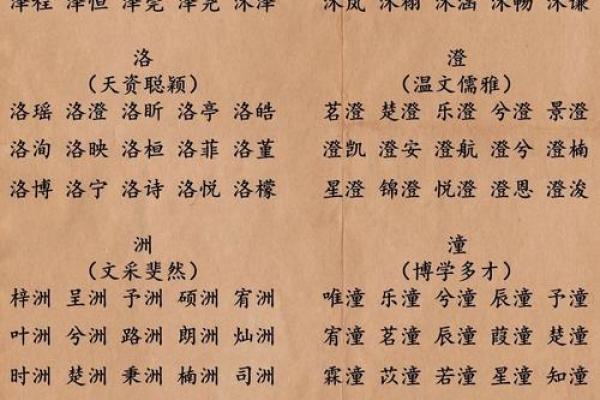 泽程 泽恒 泽尧 沐泽
沐岚 沐栩 沐涵 沐畅 沐谦
洛
（天资聪颖）
洛瑶 洛澄 洛昕 洛亭 洛皓
洛洵 洛映 洛桓 洛菲 洛堇
洛博 洛宁 洛诗 洛悦 洛檬
澄
（温文儒雅）
茗澄 楚澄 乐澄 兮澄 景澄
澄凯 澄安 澄航 澄兮 澄楠
星澄 锦澄 悦澄 澄恩 澄浚
洲
（文采斐然）
梓洲 呈洲 予洲 硕洲 宥洲
叶洲 兮洲 路洲 朗洲 灿洲
时洲 楚洲 秉洲 楠洲 司洲
潼
（博学多才）
唯潼 乐潼 兮潼 辰潼 予潼
宥潼 茗潼 辰潼 葭潼 楚潼
霖潼 苡潼 若潼 星潼 知潼